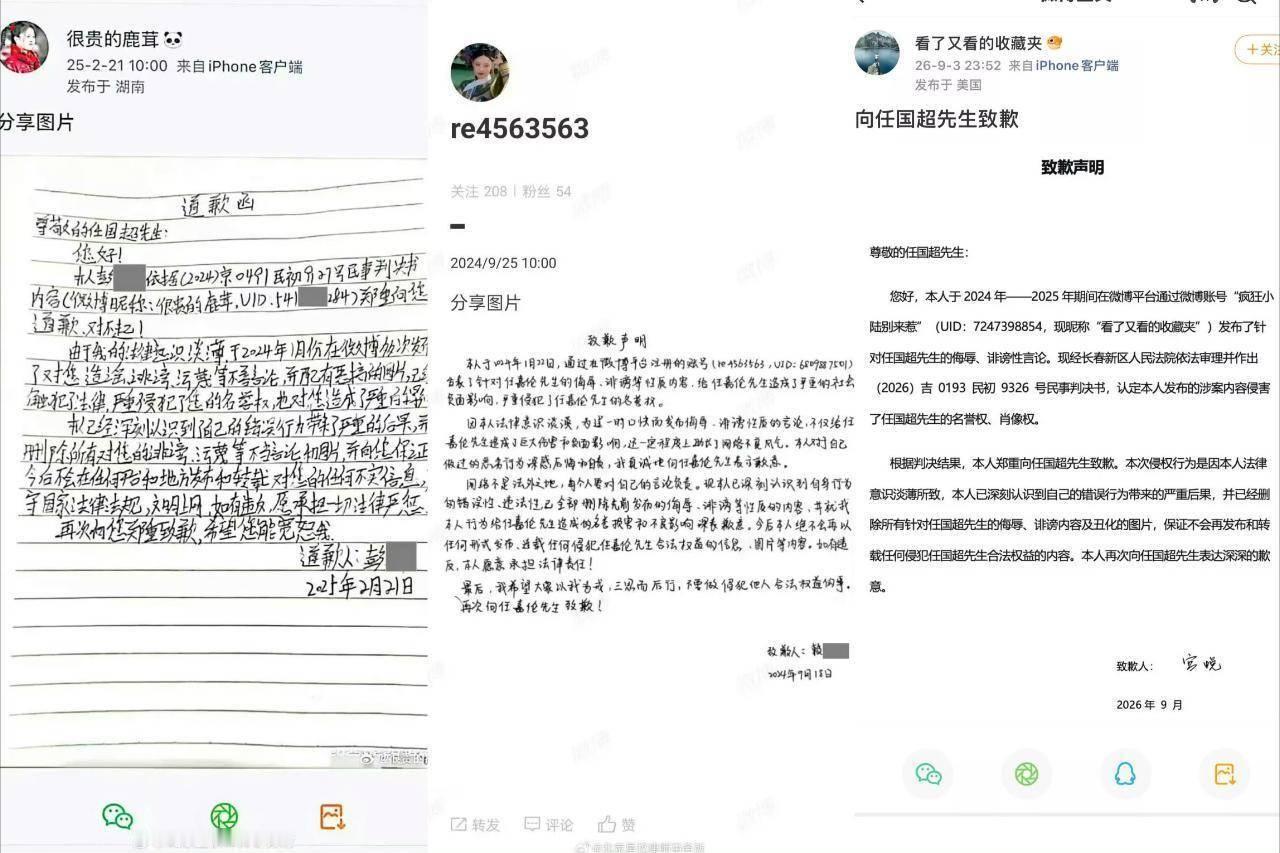 很贵的鹿茸🐼
25-2-21 10:00 来自 iPhone 客户端
发布于 湖南
分享图片
道歉函
尊敬的任国超先生:
您好!
本人彭 依据(2024)京0491民初9127号民事判决书
内容(微博昵称:很贵的鹿茸,UID.541 284)郑重向您
道歉,对不起!
由于我的法律意识淡薄,于2024年1月份在微博多次发布
了对您造谣、诽谤、污蔑等不善言论,并配有恶搞的图片,已经
触犯了法律,严重侵犯了您的名誉权,也对您造成了严重后果
本人已经深刻认识到自己的错误行为带来了严重的后果,并
删除所有对您的诽谤、污蔑等不当言论和图片,并向您保证
今后不会在任何平台和地方发布和转载对您的任何不实信息,
守国家法律法规,文明上网,如有违反,愿承担一切法律严惩
再次向您郑重致歉,希望您能宽恕我
道歉人:彭
2025年2月21日
re4563563
关注 208 | 粉丝 54
2024/9/25 10:00
分享图片
致歉声明
本人于2024年1月22日,通过在微博平台注册的账号(re4563563,UID:6809887501)
发表了针对任嘉伦先生的侮辱、诽谤等性质内容,给任嘉伦先生造成了严重的社会
负面影响,严重侵犯了任嘉伦先生的名誉权。
因本人法律意识淡漠,为逞一时口快而发布侮辱、诽谤性质的言论,不仅给任
嘉伦先生造成了巨大伤害和负面影响,还一定程度上助长了网络不良风气。本人对自己
做过的恶劣行为深感后悔和自责,我真诚地向任嘉伦先生表示歉意。
网络不是法外之地,每个人要对自己的言论负责。现本人已深刻认识到自身行为
的错误性、违法性,已全部删除先前发布的侮辱、诽谤等性质的内容,并就我
本人行为给任嘉伦先生造成的名誉损害和不良影响深表歉意。今后本人绝不会再以
任何形式发布、连载任何侵犯任嘉伦先生合法权益的信息、图片等内容。如有违
反,本人愿意承担法律责任!
最后,我希望大家以我为戒,三思而后行,不要做侵犯他人合法权益的事。
再次向任嘉伦先生致歉!
致歉人:赖
2024年9月18日
转发 评论 赞
看了又看的收藏夹
26-9-3 23:52 来自 iPhone 客户端
发布于 美国
+关注
向任国超先生致歉
致歉声明
尊敬的任国超先生:
您好,本人于 2024 年——2025 年期间在微博平台通过微博账号“疯狂小
陆别来惹”(UID:7247398854,现昵称“看了又看的收藏夹”)发布了针
对任国超先生的侮辱、诽谤性言论。现经长春新区人民法院依法审理并作出
(2026)吉 0193 民初 9326 号民事判决书,认定本人发布的涉案内容侵害
了任国超先生的名誉权、肖像权。
根据判决结果,本人郑重向任国超先生致歉。本次侵权行为是因本人法律
意识淡薄所致,本人已深刻认识到自己的错误行为带来的严重后果,并已经
删除所有针对任国超先生的侮辱、诽谤内容及丑化的图片,保证不会再发布和转
载任何侵犯任国超先生合法权益的内容。本人再次向任国超先生表达深深的歉
意。
致歉人: 宫晓
2026 年 9 月